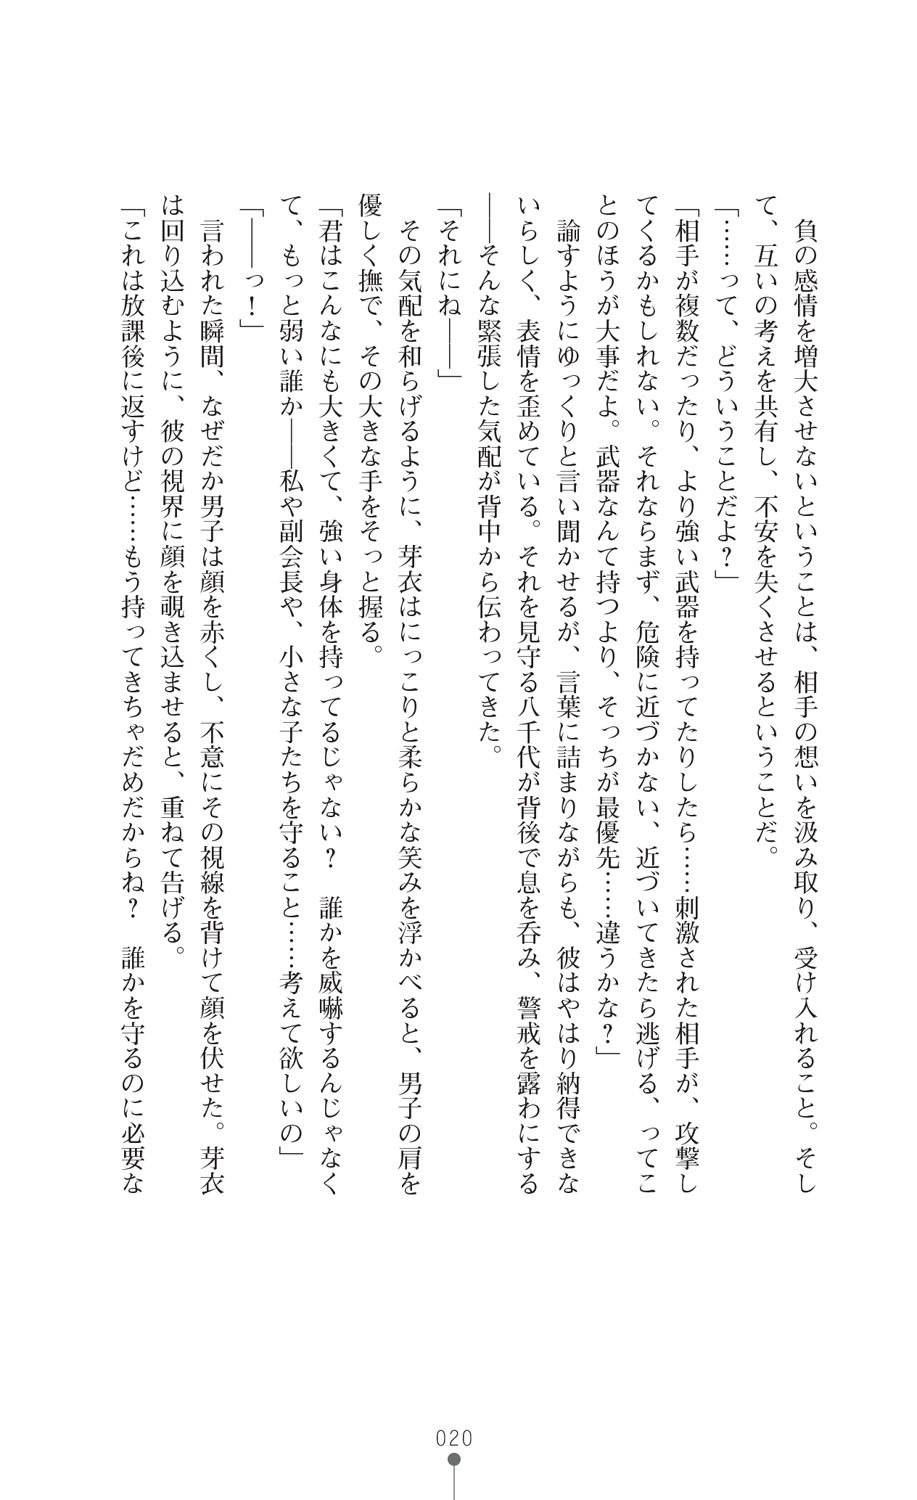 負の感情を増大させないということは、相手の想いを汲み取り、受け入れること。そし
て、互いの考えを共有し、不安を失くさせるということだ。
「……って、どういうことだよ？」
「相手が複数だったり、より強い武器を持ってたりしたら……刺激された相手が、攻撃し
てくるかもしれない。それならまず、危険に近づかない、近づいてきたら逃げる、ってこ
とのほうが大事だよ。武器なんて持つより、そっちが最優先……違うかな？」
　諭すようにゆっくりと言い聞かせるが、言葉に詰まりながらも、彼はやはり納得できな
いらしく、表情を歪めている。それを見守る八千代が背後で息を呑み、警戒を露わにする
――そんな緊張した気配が背中から伝わってきた。
「それにね――」
　その気配を和らげるように、芽衣はにっこりと柔らかな笑みを浮かべると、男子の肩を
優しく撫で、その大きな手をそっと握る。
「君はこんなにも大きくて、強い身体を持ってるじゃない？　誰かを威嚇するんじゃなく
て、もっと弱い誰か――私や副会長や、小さな子たちを守ること……考えて欲しいの」
「――っ！」
　言われた瞬間、なぜだか男子は顔を赤くし、不意にその視線を背けて顔を伏せた。芽衣
は回り込むように、彼の視界に顔を覗き込ませると、重ねて告げる。
「これは放課後に返すけど……もう持ってきちゃだめだからね？　誰かを守るのに必要な
020